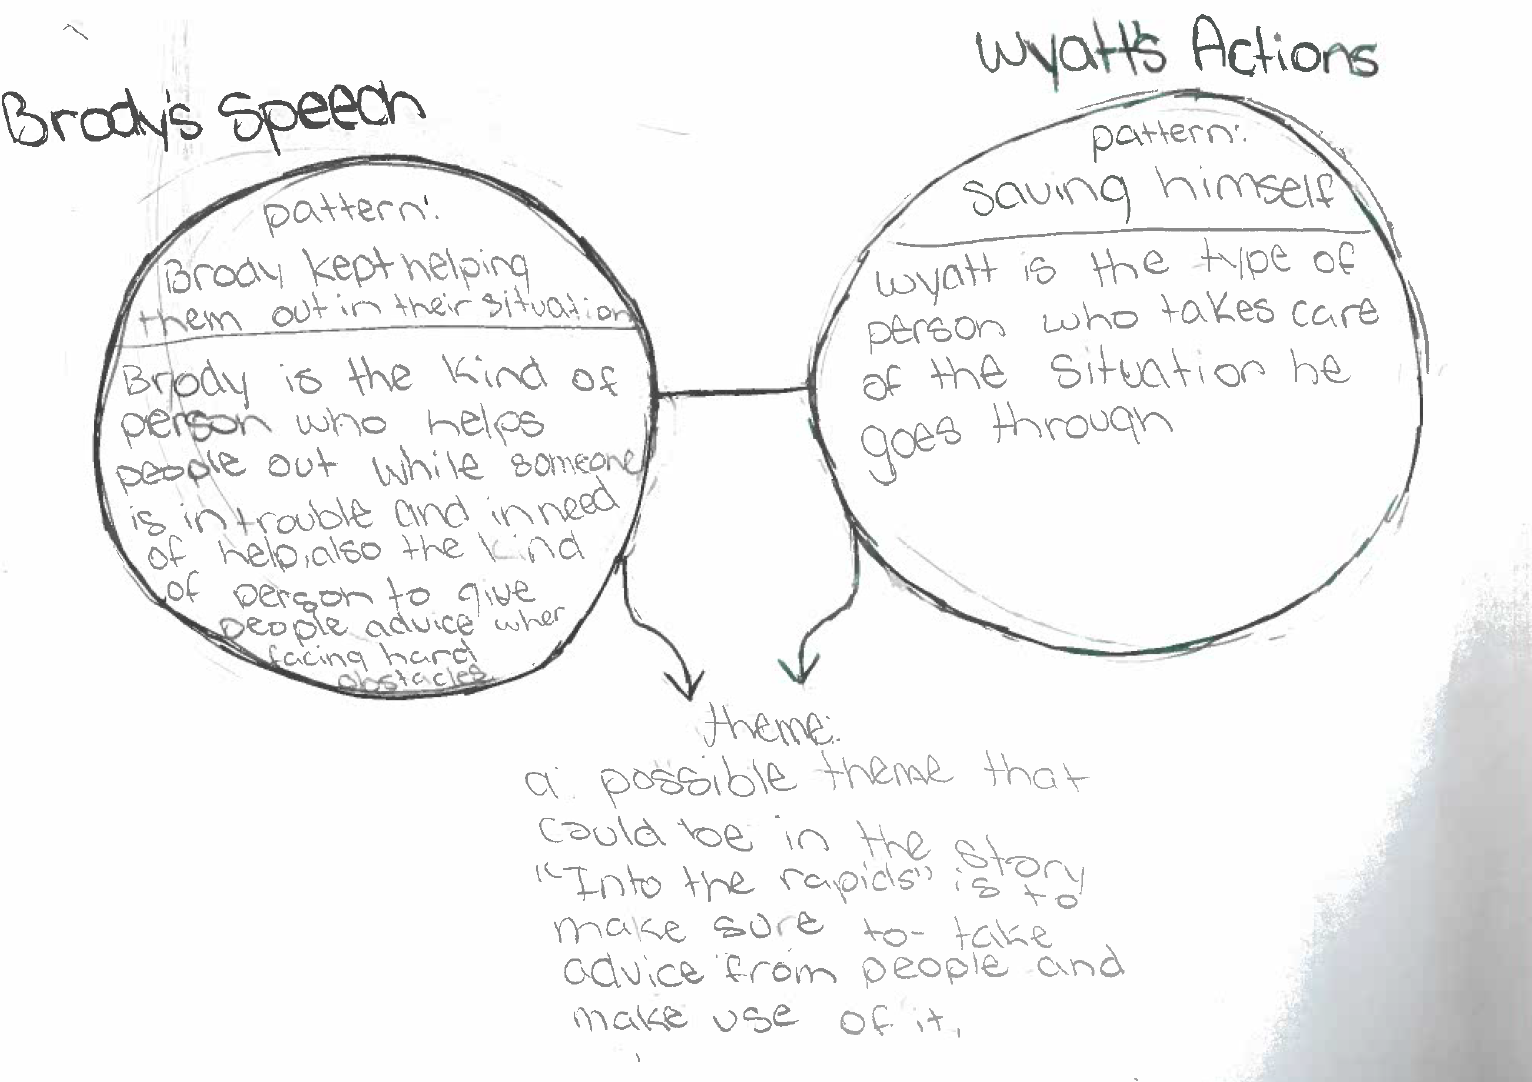 Brody's Speech
pattern:
Brody kept helping
them out in their situation
Brody is the kind of
person who helps
people out while someone
is in trouble and in need
of help, also the kind
of person to give
people advice when
facing hard
obstacles.
Wyatt's Actions
pattern:
saving himself
Wyatt is the type of
person who takes care
of the situation he
goes through
theme:
a possible theme that
could be in the story
"Into the rapids" is to
make sure to take
advice from people and
make use of it.